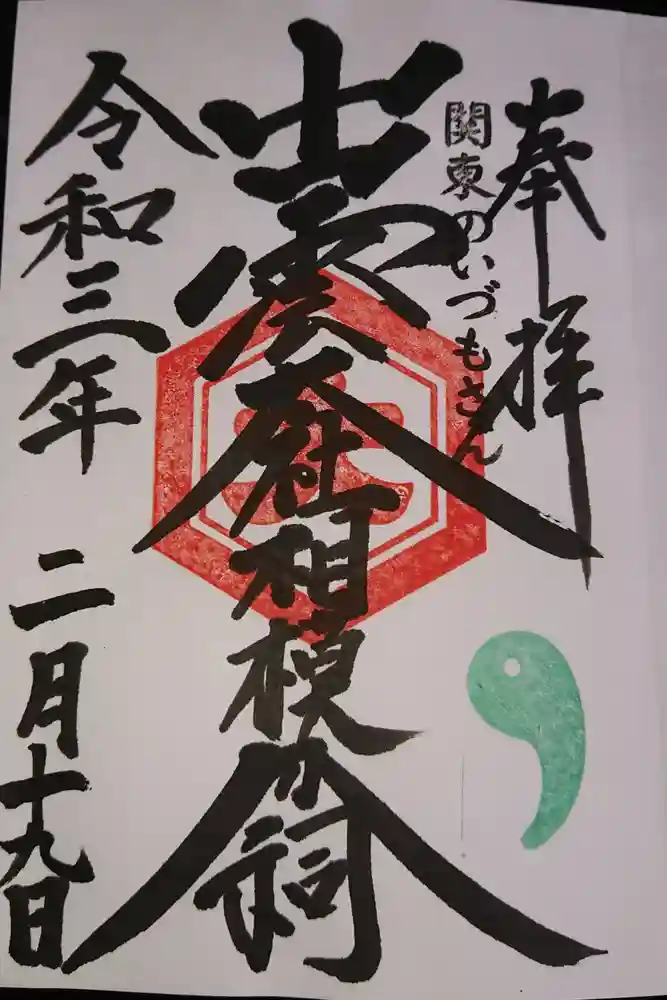 奉拝
関東のいづもさん
出雲大社相模分祠
令和三年二月十九日